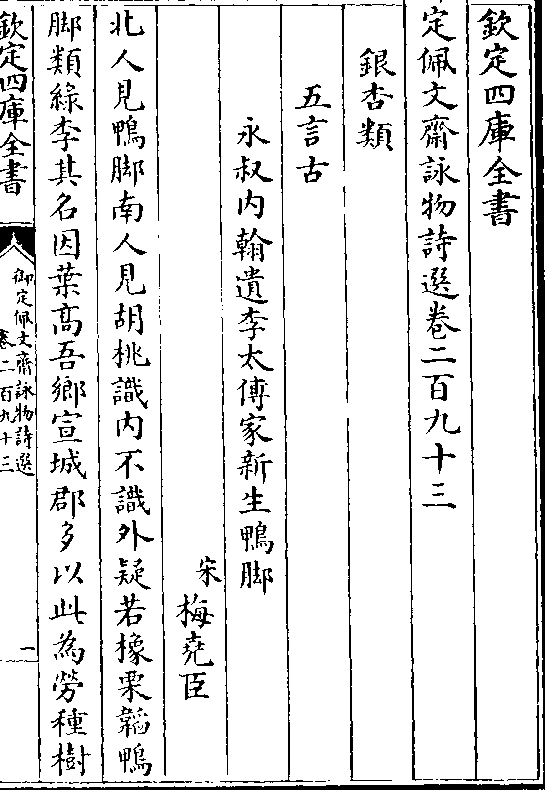 欽定四庫全書
定佩文齋詠物詩選卷二百九十三
銀杏類
五言古
永叔内翰遺李太傅家新生鴨脚
宋梅堯臣
北人見鴨脚南人見胡桃識内不識外疑若橡栗韜鴨
脚類緑李其名因葉髙吾鄉宣城郡多以此為勞種樹
欽定四庫全書
御定佩文齋詠物詩選
卷二百九十三
一